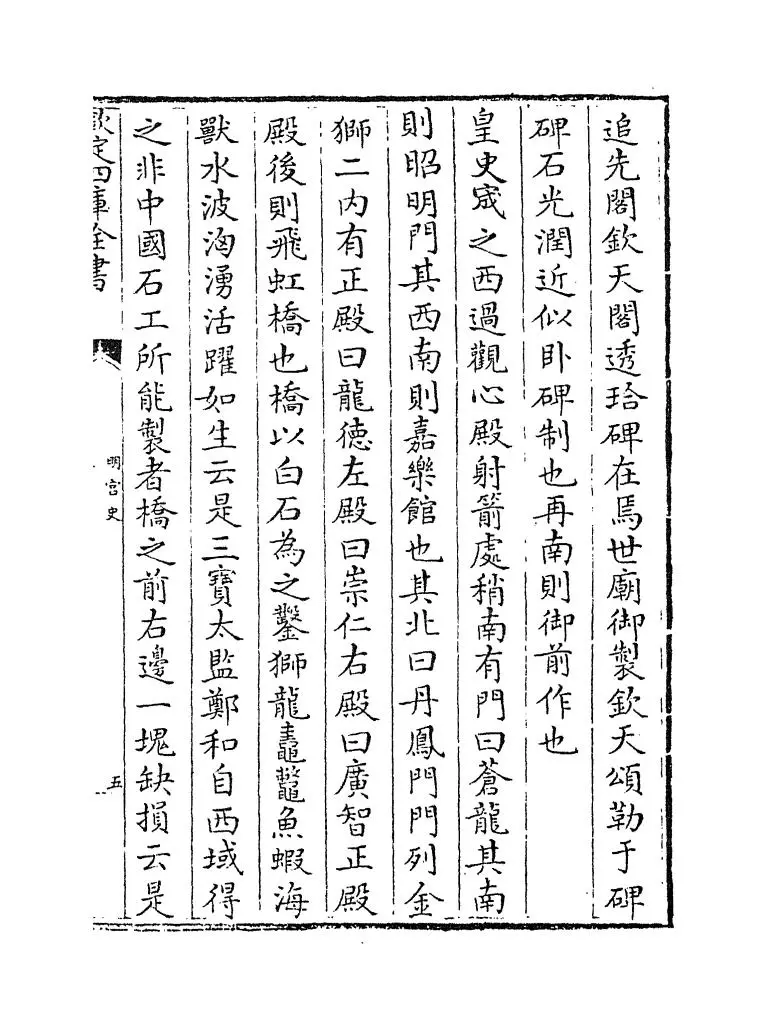 追先閣欽天閣透玲碑在焉世廟御製欽天頌勒于碑
碑石光潤近似卧碑制也再南則御前作也
皇史宬之西過觀心殿射箭處稍南有門曰蒼龍其南
則昭明門其西南則嘉樂館也其北曰丹鳳門門列金
獅二内有正殿曰龍德左殿曰崇仁右殿曰廣智正殿
殿後則飛虹橋也橋以白石為之鑿獅龍鼉鼇魚蝦海
獸水波洶湧活躍如生云是三寶太監鄭和自西域得
之非中國石工所能製者橋之前右邊一塊缺損云是
欽定四庫全書
明宫史
五